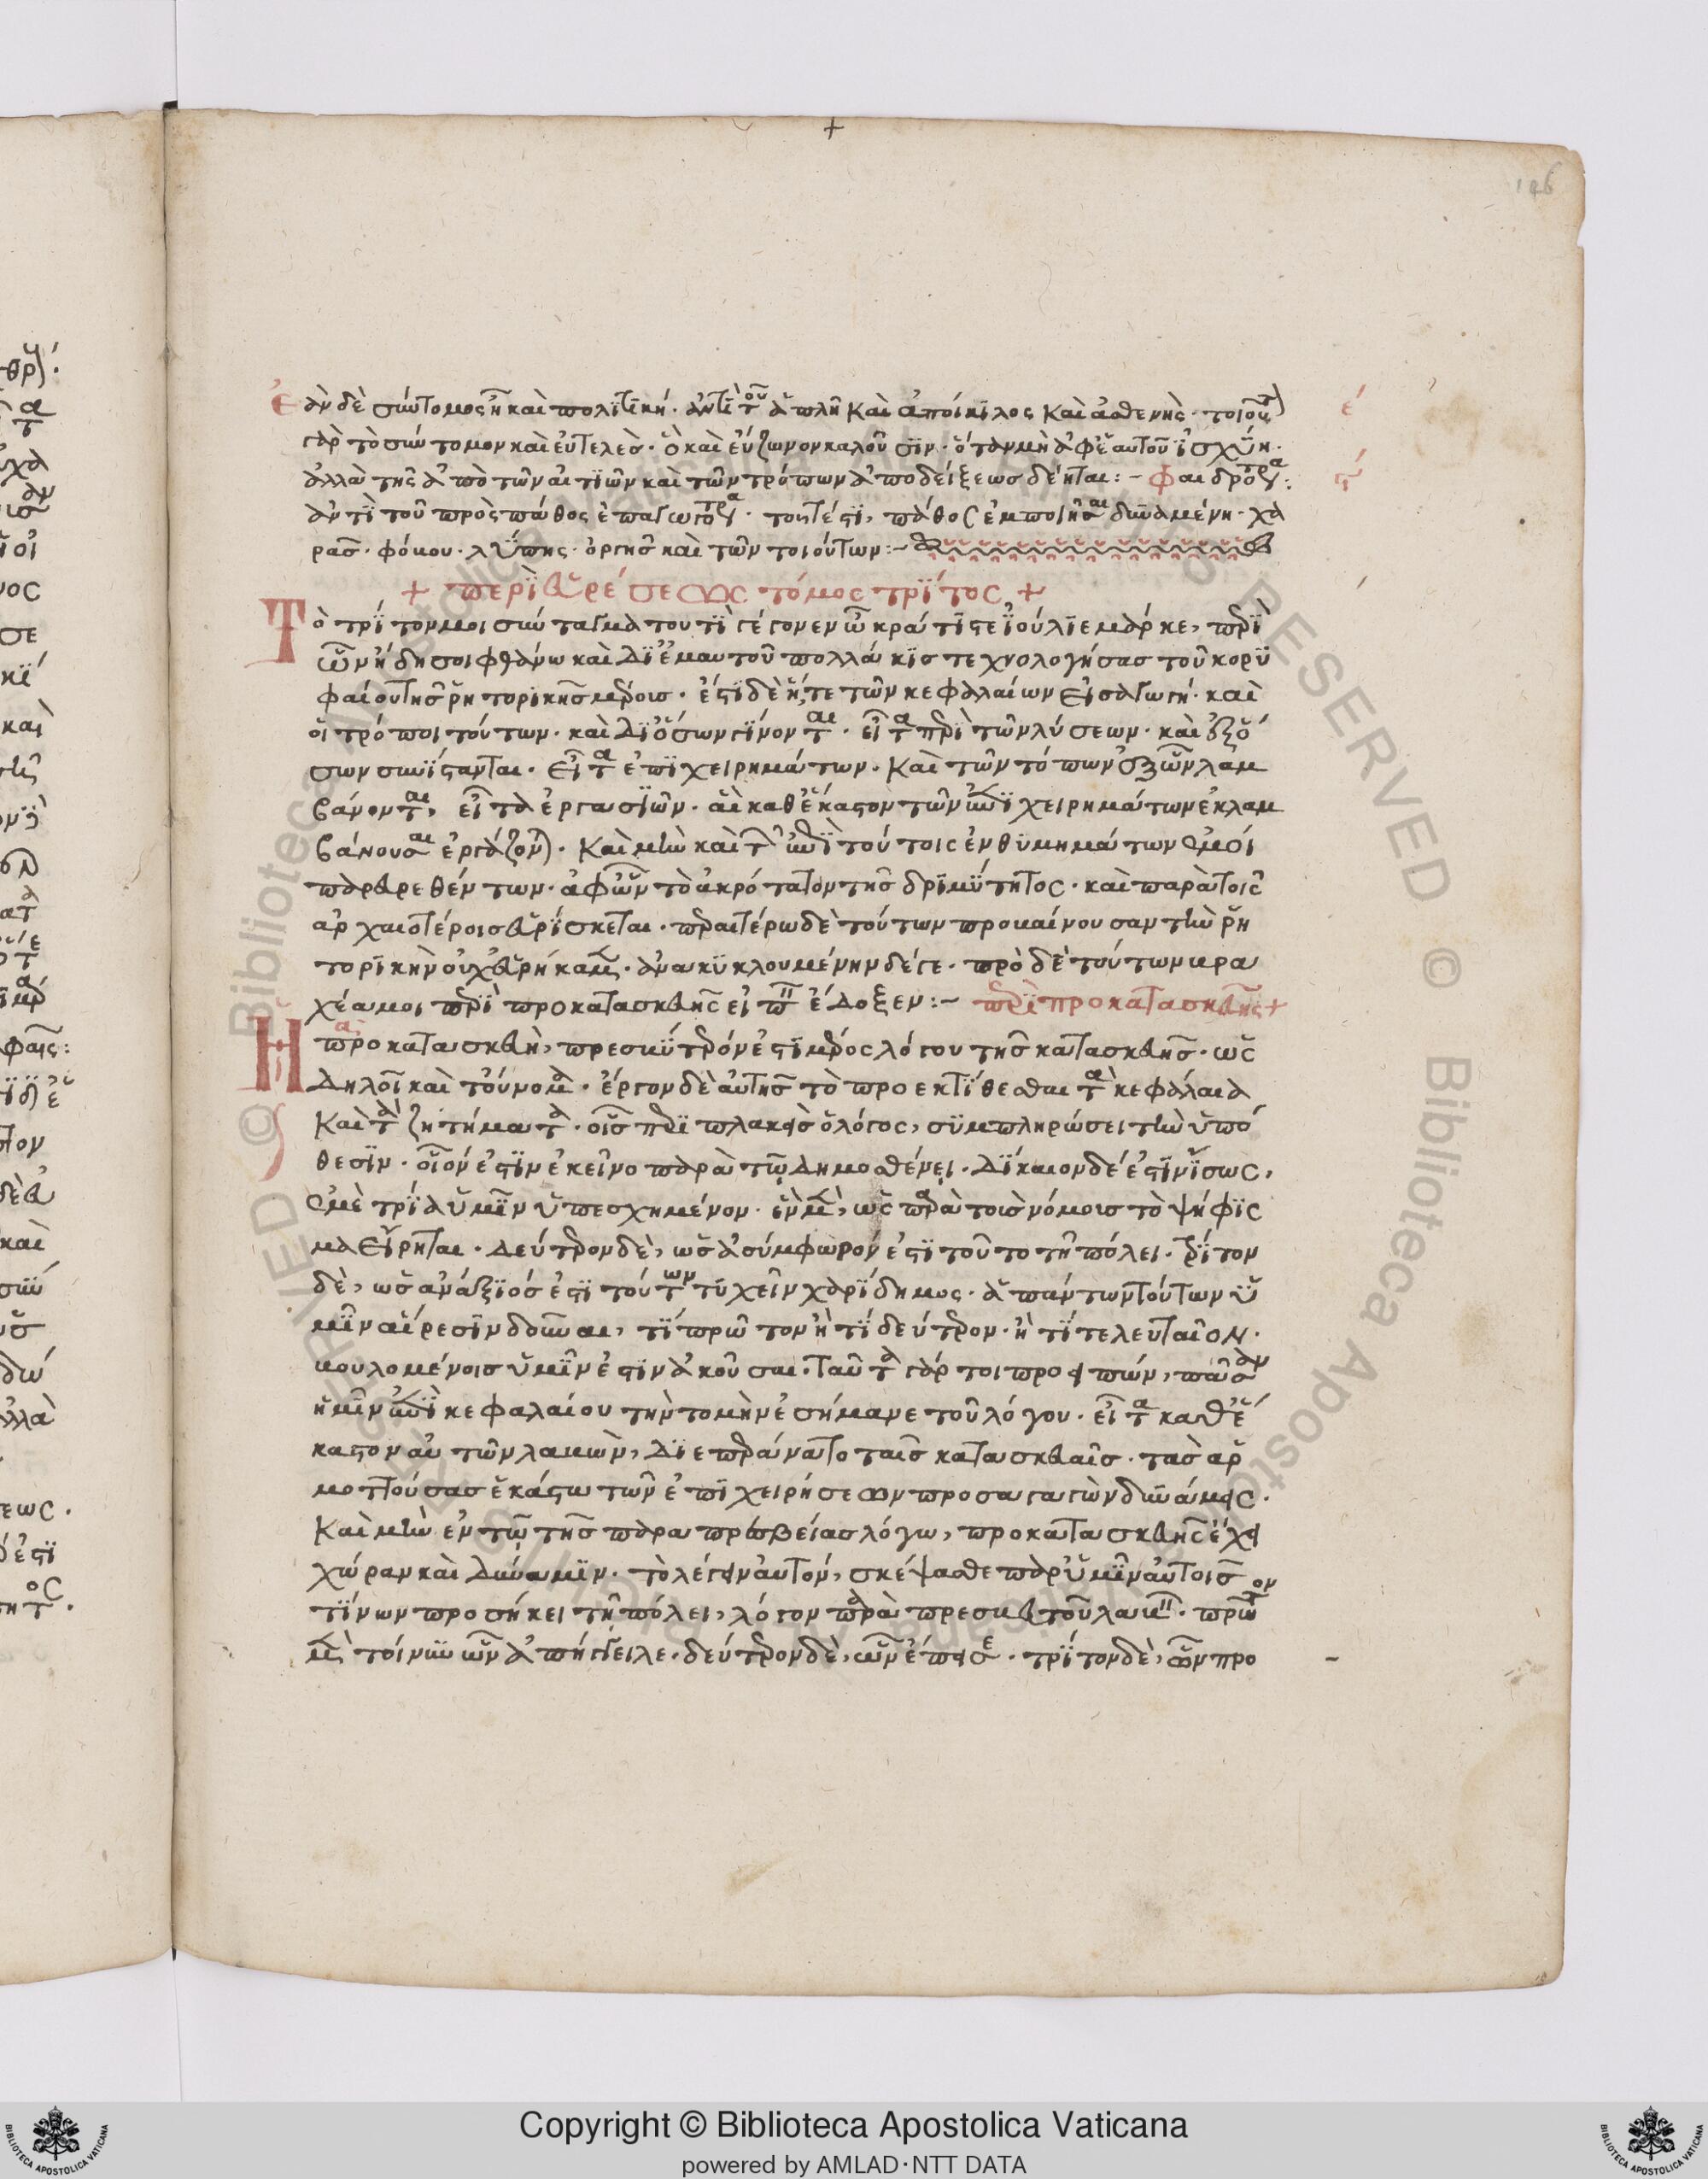 146
ἐὰν δὲ σύντομος ἦ καὶ πολιτικὴ. ἀντὶ τοῦ ἁπλῆ καὶ ἀποίκιλος καὶ ἀσθενὴς. τοιοῦτ
γὰρ τὸ σύντομον καὶ εὐτελὲς. ὃ καὶ εὔζωνον καλοῦσιν. ὅταν μὴ ἀφ' ἑαυτοῦ ἰσχύη.
ἀλλὰ τῆς ἀπὸ τῶν αἰτιῶν καὶ τῶν τρόπων ἀποδείξεως δέηται: - φαιδροτέρα:
ἀντὶ τοῦ πρὸς πάθος ἐπαγωγοτέρα. τουτέστι, πάθος ἐμποιῆσαι δυναμένη. χα
ρᾶς. φόβου. λύπης. ὀργῆς καὶ τῶν τοιούτων: -
+ περὶ εὑρέσεως τόμος τρίτος +
Τὸ τρίτον μοι σύνταγμα τουτὶ γέγονεν ὦ κράτιστε ἰούλιε μάρκε, περὶ
ὧν ἤδη σοι φθάνω καὶ δι' ἐμαυτοῦ πολλάκις τεχνολογήσας τοῦ κορυ
φαίου τῆς ῥητορικῆς μέρους. ἔστι δὲ ἥ, τε τῶν κεφαλαίων εἰσαγωγή. καὶ
οἱ τρόποι τούτων. καὶ δι' ὅσων γίνονται. εἶτα περὶ τῶν λύσεων. καὶ ἐξ ὅ
σων συνίστανται. εἶτα ἐπιχειρημάτων. καὶ τῶν τόπων ἐξ ὧν λαμ
βάνονται, εἶτα ἐργασιῶν. αἳ καθ' ἕκαστον τῶν ἐπιχειρημάτων ἐκλαμ
βάνουσαι ἐργάζονται. καὶ μὴν καὶ τῶν ἐπὶ τούτοις ἐνθυμημάτων ἐμοὶ
παρευρεθέντων. ἀφ' ὧν τὸ ἀκρότατον τῆς δριμύτητος. καὶ παρὰ τοῖς
ἀρχαιοτέροις εὑρίσκεται. περαιτέρω δὲ τούτων προβαίνουσαν τὴν ῥη
τορικὴν οὐχ εὑρήκαμεν. ἀνακυκλουμένην δέ γε. πρὸ δὲ τούτων βρα
χέα μοι περὶ προκατασκευῆς εἰπεῖν ἔδοξεν: - περὶ προκατασκευῆς +
Ἡ προκατασκευὴ, πρεσβύτερόν ἐστι μέρος λόγου τῆς κατασκευῆς. ὡς
δηλοῖ καὶ τοὔνομα. ἔργον δὲ αὐτῆς τὸ προεκτίθεσθαι τὰ κεφάλαια
καὶ τὰ ζητήματα. οἷς περιπλακεὶς ὁ λόγος, συμπληρώσει τὴν ὑπό
θεσιν. οἷόν ἐστιν ἐκεῖνο παρὰ τῷ δημοσθένει. δίκαιον δέ ἐστιν ἴσως,
ἐμὲ τρία ὑμῖν ὑπεσχημένον. ἓν μὲν, ὡς παρὰ τοὺς νόμους τὸ ψήφισ
μα εἴρηται. δεύτερον δὲ, ὡς ἀσύμφωρόν ἐστι τοῦτο τῆ πόλει. τρίτον
δὲ, ὡς ἀνάξιός ἐστι τούτων τυχεῖν χαρίδημος. ἁπάντων τούτων ὑ
μῖν αἵρεσιν δοῦναι, τί πρῶτον ἢ τί δεύτερον. ἢ τί τελευταῖον.
βουλομένοις ὑμῖν ἐστιν ἀκοῦσαι. ταῦτα γάρ τοι προειπών, πᾶσαν
ἡμῖν ἐπὶ κεφαλαίου τὴν τομὴν ἐσήμανε τοῦ λόγου. εἶτα καθ' ἕ
καστον αὐτῶν λαβὼν, διεπεράνατο ταῖς κατασκευαῖς. τὰς ἁρ
μοττούσας ἑκάστω τῶν ἐπιχειρήσεων προσαγαγὼν δυνάμεις.
καὶ μὴν ἐν τῷ τῆς παραπρεσβείας λόγω, προκατασκευῆς ἔχει
χώραν καὶ δύναμιν. τὸ λέγειν αὐτόν, σκέψασθε παρ' ὑμῖν αὐτοῖς
τίνων προσήκει τῆ πόλει, λόγον παρὰ πρεσβευτοῦ λαβεῖν. πρῶτον
μὲν τοίνυν ὧν ἀπήγγειλε. δεύτερον δὲ, ὧν ἔπεισε. τρίτον δὲ, ὧν προ